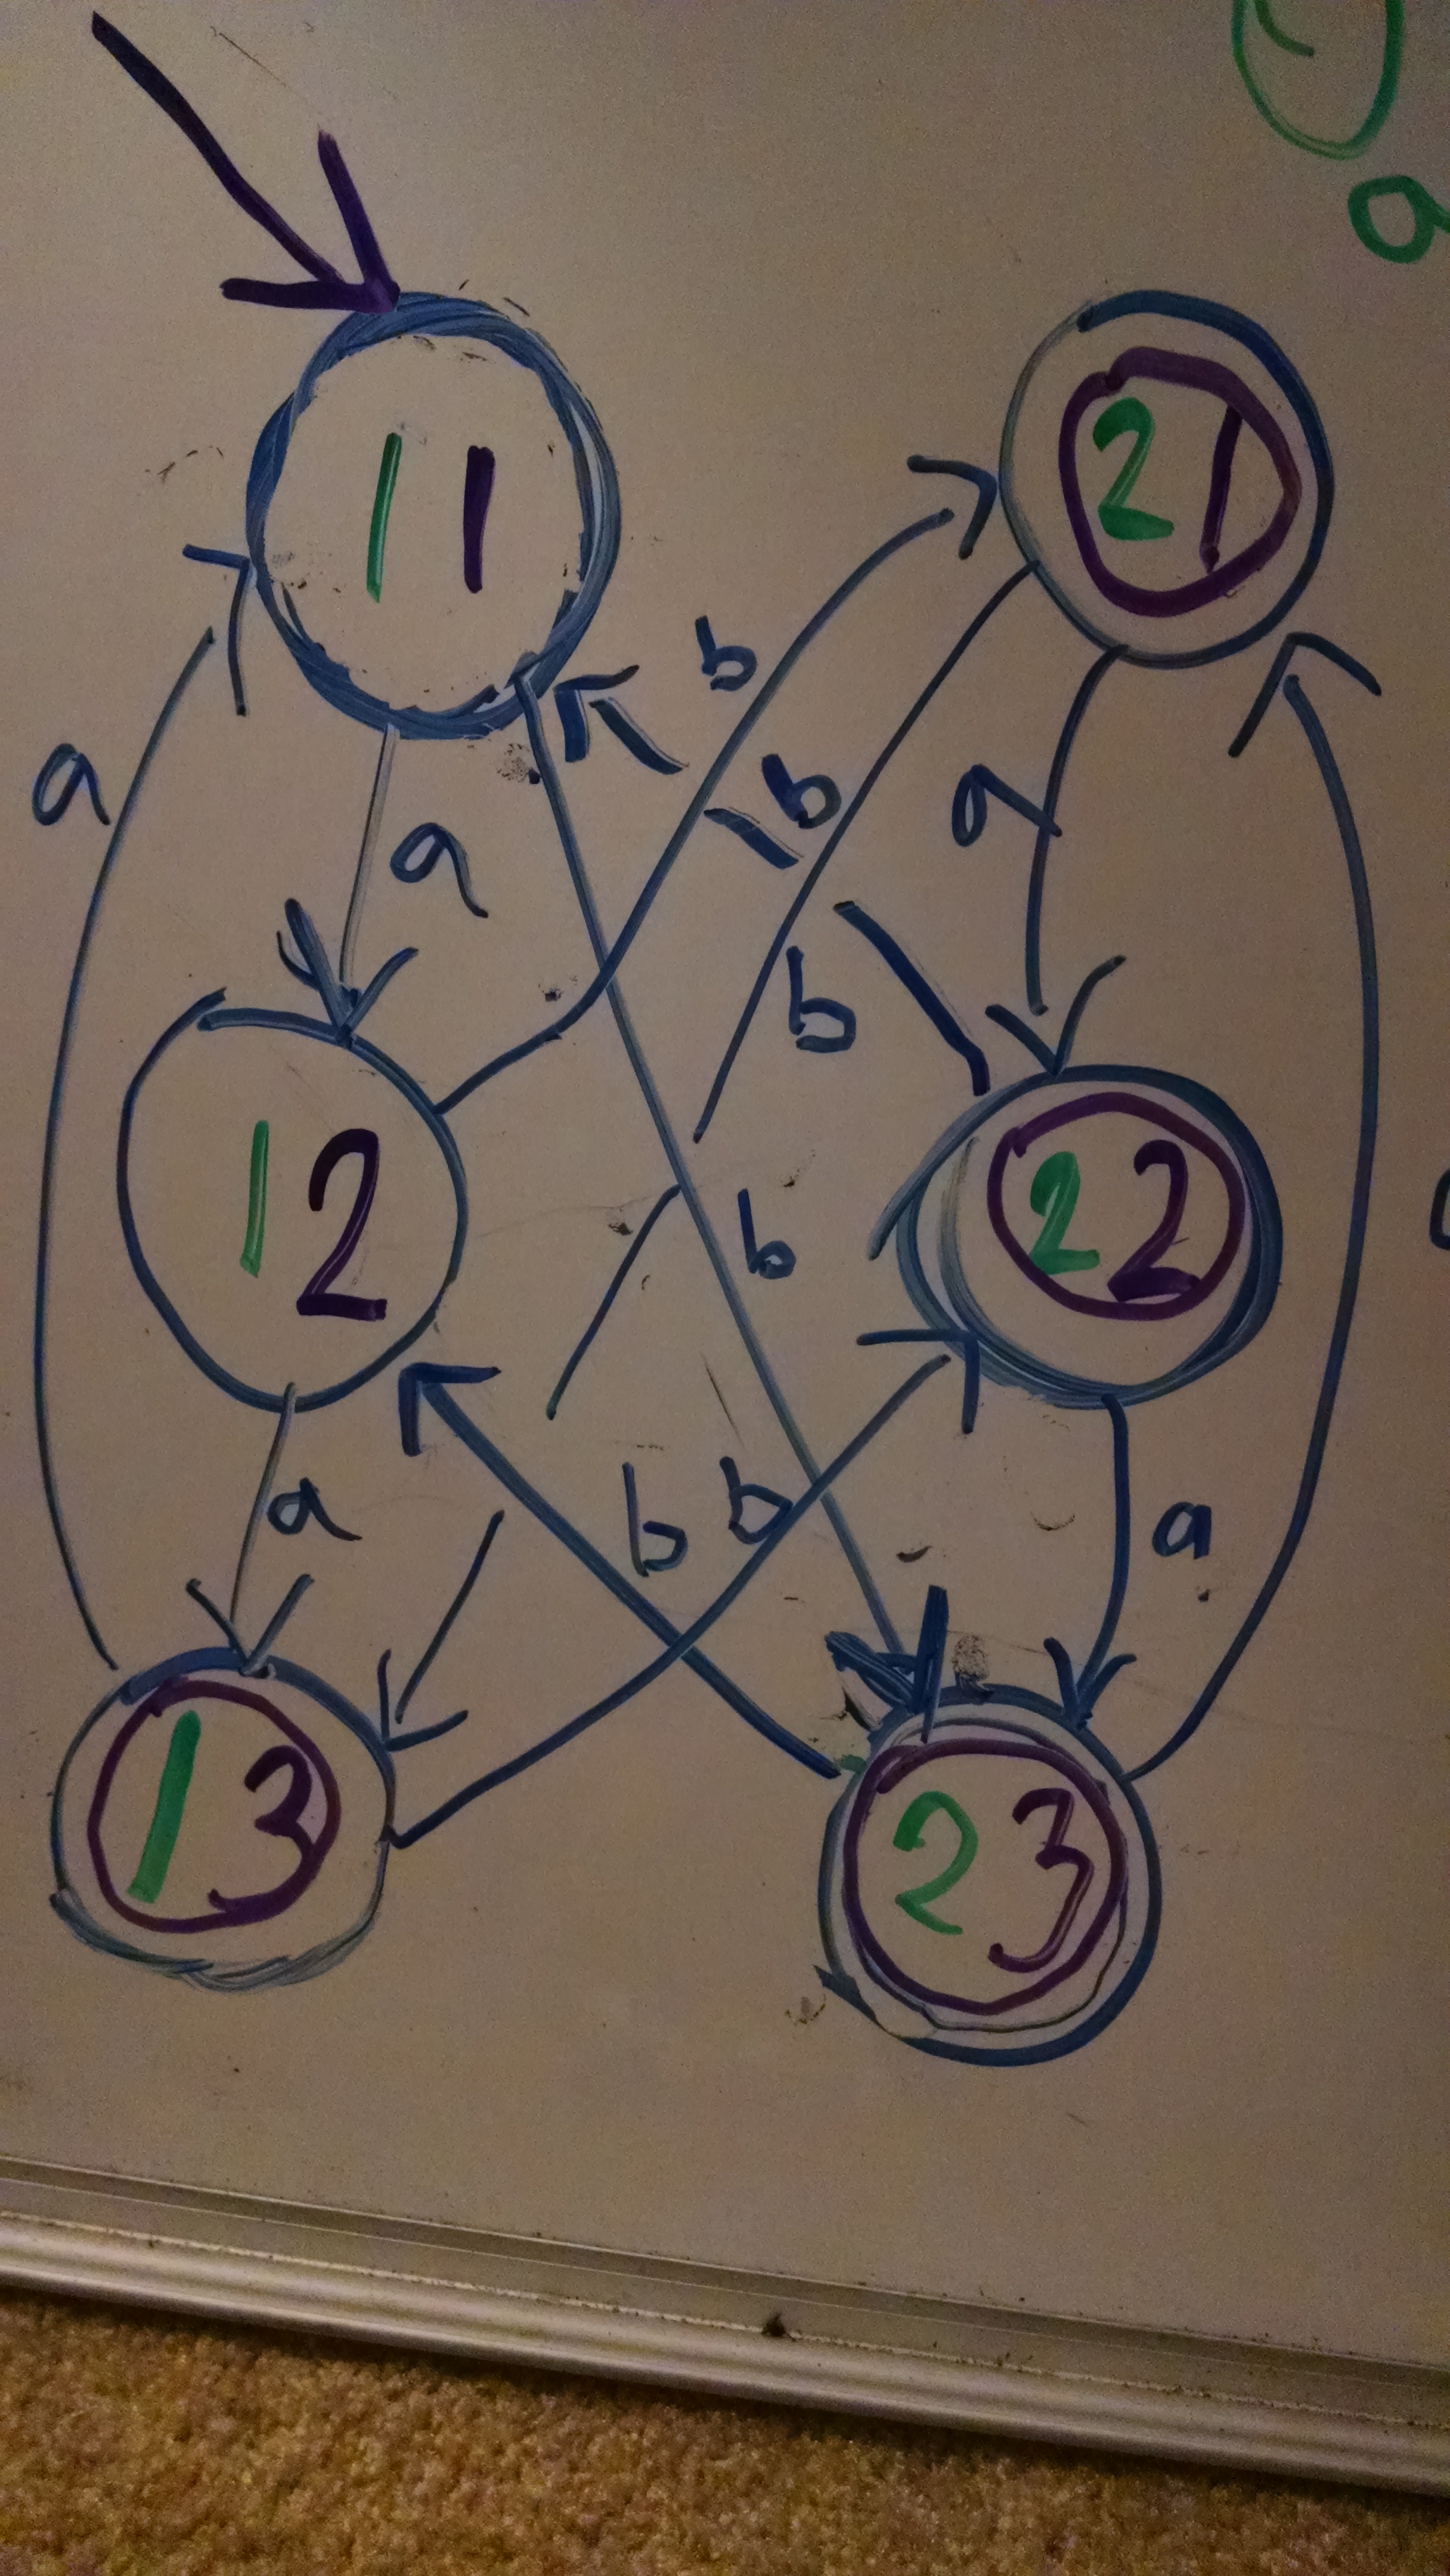 a
11
21
b
a
b
a
a
b
12
22
b
a
b
b
a
13
23